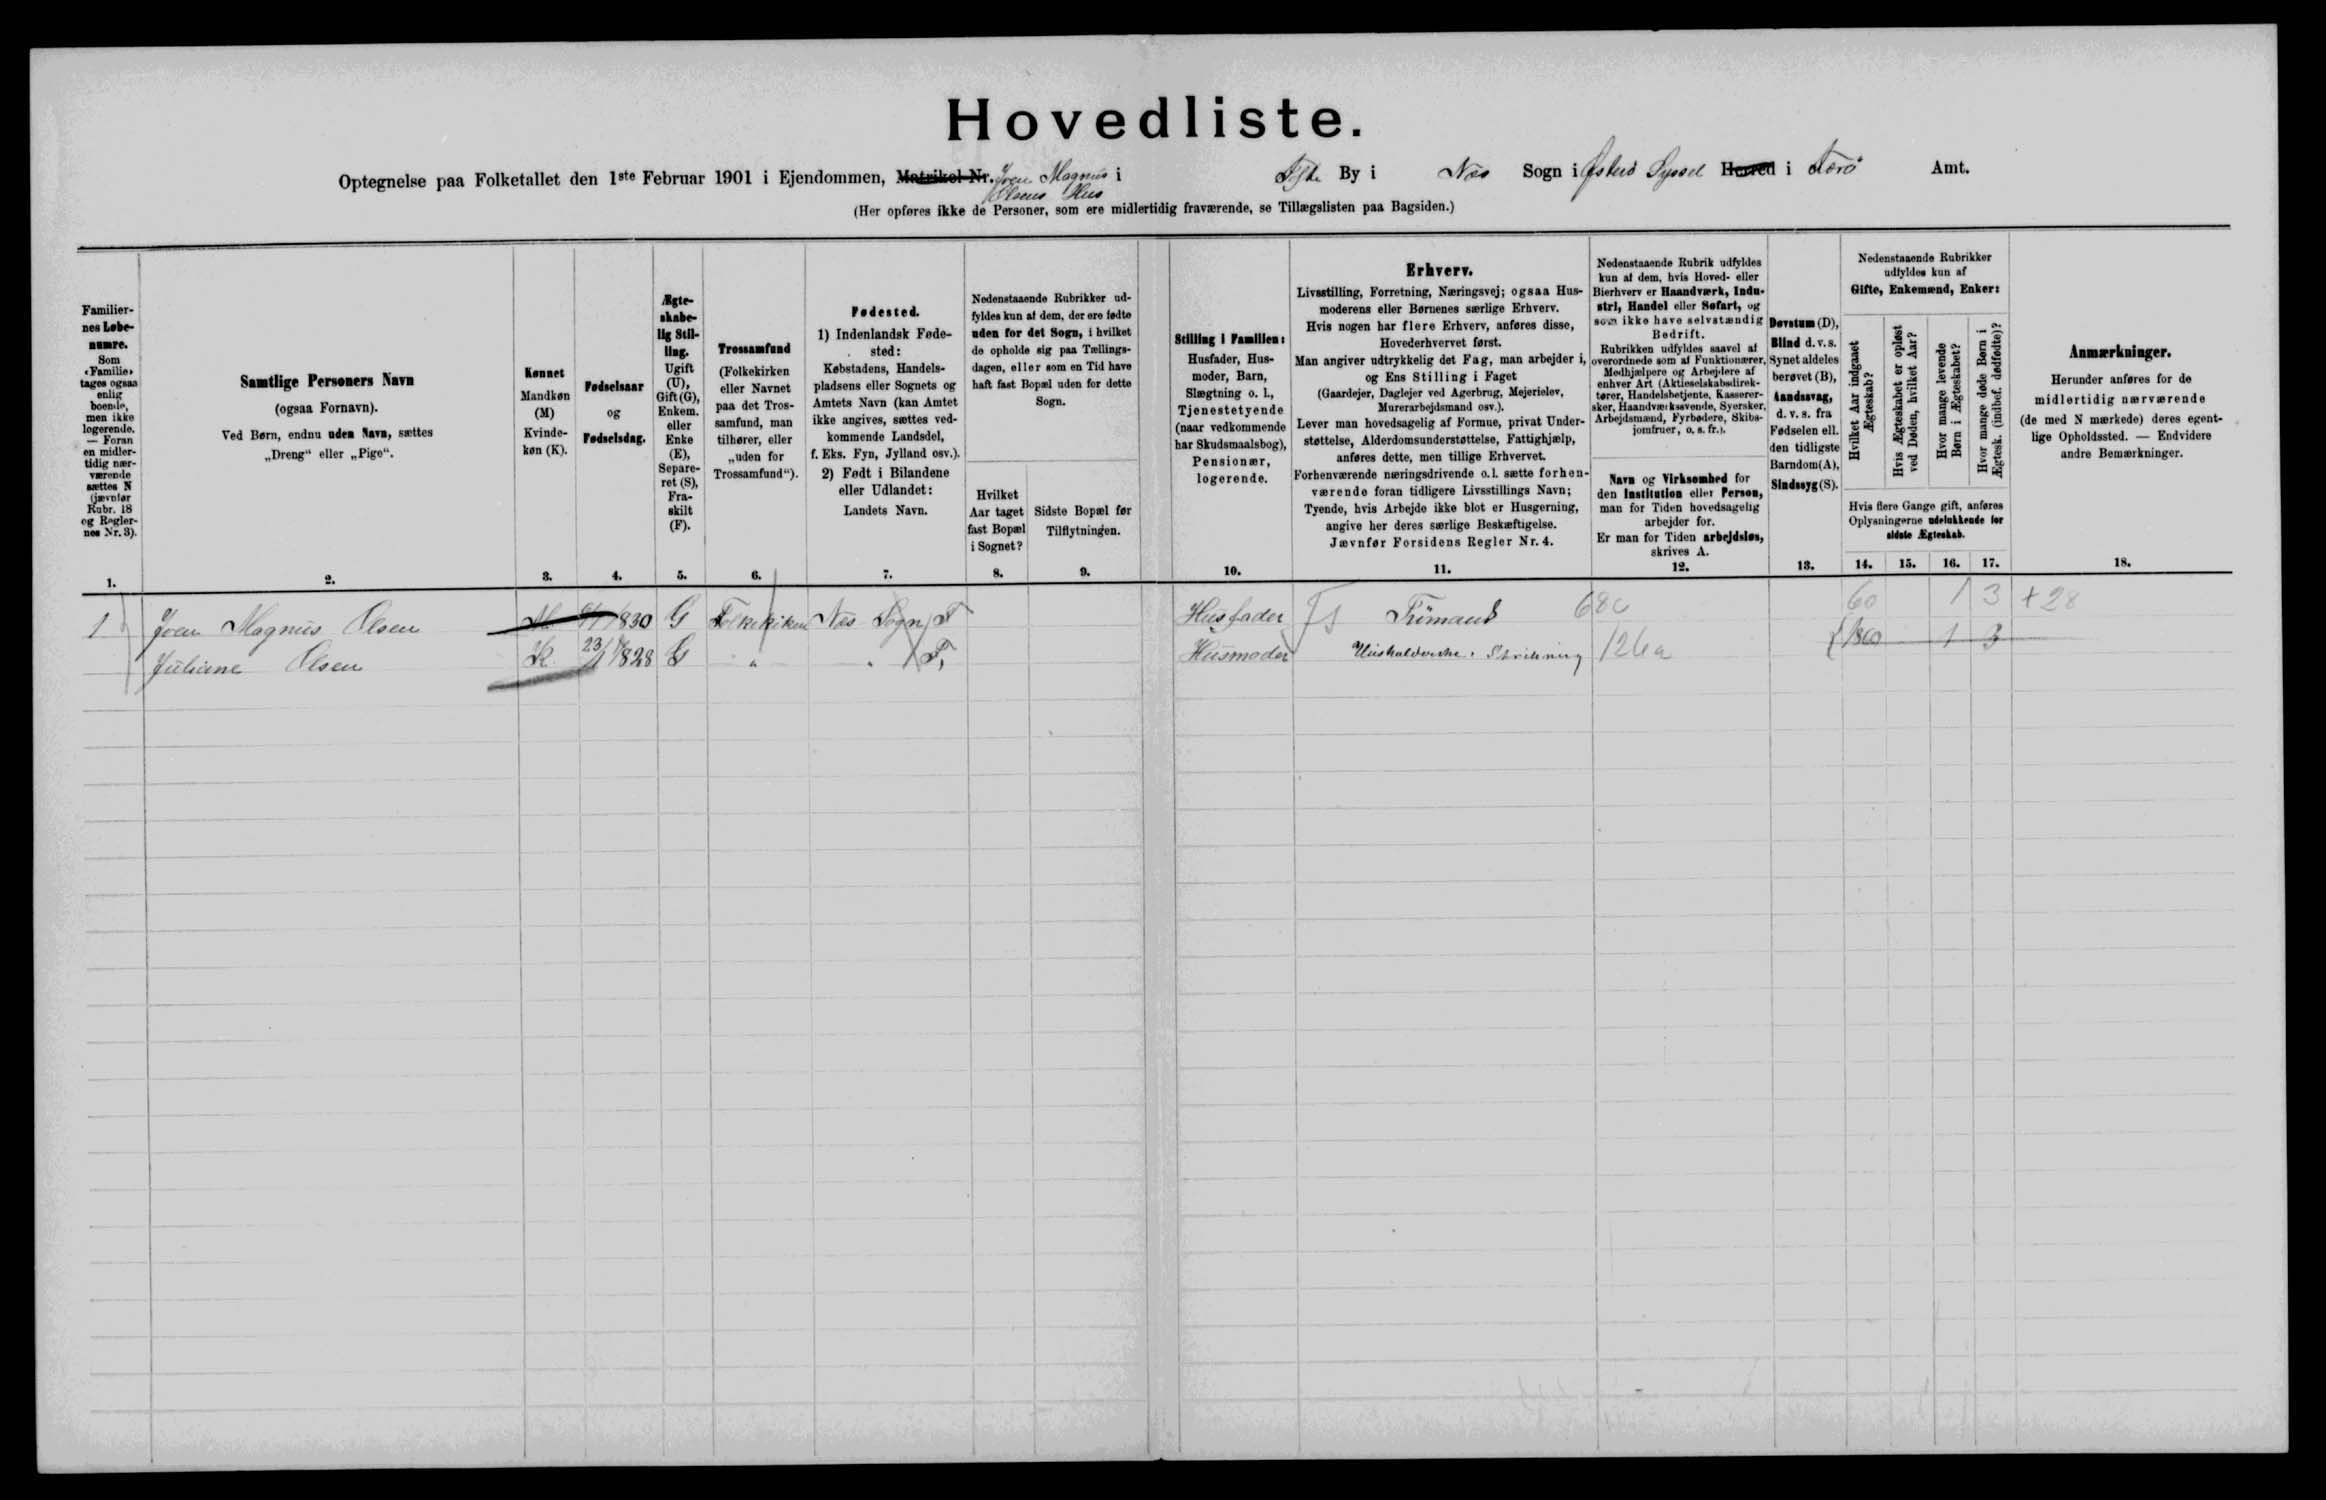 Hovedliste.
Optegnelse paa Folketallet den 1ste Februar 1901 i Ejendommen, Matrikel-Nr. Joen Magnus i By i Næs Sogn i Østerø Syssel Herred i Færø Amt.
Olsens Hus
(Her opføres ikke de Personer, som ere midlertidig fraværende, se Tillægslisten paa Bagsiden.)
Familier-
nes Løbe-
numre.
Som
«Familie»
tages ogsaa
enlig
boende,
men ikke
logerende.
— Foran
en midler-
tidig nær-
værende
sættes N
(jævnfør
Rubr. 18
og Regler-
nes Nr. 3).
1.
Samtlige Personers Navn
(ogsaa Fornavn).
Ved Børn, endnu uden Navn, sættes
„Dreng“ eller „Pige“.
2.
Kønnet
Mandkøn
(M)
Kvinde-
køn (K).
3.
Fødselsaar
og
Fødselsdag.
4.
Ægte-
skabe-
lig Stil-
ling.
Ugift
(U),
Gift (G),
Enkem.
eller
Enke
(E),
Separe-
ret (S),
Fra-
skilt
(F).
5.
Trossamfund
(Folkekirken
eller Navnet
paa det Tros-
samfund, man
tilhører, eller
„uden for
Trossamfund“).
6.
Fødested.
1) Indenlandsk Føde-
sted:
Købstadens, Handels-
pladsens eller Sognets og
Amtets Navn (kan Amtet
ikke angives, sættes ved-
kommende Landsdel,
f. Eks. Fyn, Jylland osv.).
2) Født i Bilandene
eller Udlandet:
Landets Navn.
7.
Nedenstaaende Rubrikker ud-
fyldes kun af dem, der ere fødte
uden for det Sogn, i hvilket
de opholde sig paa Tællings-
dagen, eller som en Tid have
haft fast Bopæl uden for dette
Sogn.
Hvilket
Aar taget
fast Bopæl
i Sognet?
8.
Sidste Bopæl før
Tilflytningen.
9.
Stilling i Familien:
Husfader, Hus-
moder, Barn,
Slægtning o. l.,
Tjenestetyende
(naar vedkommende
har Skudsmaalsbog),
Pensionær,
logerende.
10.
Erhverv.
Livsstilling, Forretning, Næringsvej; ogsaa Hus-
moderens eller Børnenes særlige Erhverv.
Hvis nogen har flere Erhverv, anføres disse,
Hovederhvervet først.
Man angiver udtrykkelig det Fag, man arbejder i,
og Ens Stilling i Faget
(Gaardejer, Daglejer ved Agerbrug, Mejerielev,
Murerarbejdsmand osv.).
Lever man hovedsagelig af Formue, privat Under-
støttelse, Alderdomsunderstøttelse, Fattighjælp,
anføres dette, men tillige Erhvervet.
Forhenværende næringsdrivende o. l. sætte forhen-
værende foran tidligere Livsstillings Navn;
Tyende, hvis Arbejde ikke blot er Husgerning,
angive her deres særlige Beskæftigelse.
Jævnfør Forsidens Regler Nr. 4.
11.
Nedenstaaende Rubrik udfyldes
kun af dem, hvis Hoved- eller
Bierhverv er Haandværk, Indu-
stri, Handel eller Søfart, og
som ikke have selvstændig
Bedrift.
Rubrikken udfyldes saavel af
overordnede som af Funktionærer,
Medhjælpere og Arbejdere af
enhver Art (Aktieselskabsdirek-
tører, Handelsbetjente, Kasserer-
sker, Haandværkssvende, Syersker,
Arbejdsmænd, Fyrbødere, Skibs-
jomfruer, o. s. fr.).
Navn og Virksomhed for
den Institution eller Person,
man for Tiden hovedsagelig
arbejder for.
Er man for Tiden arbejdsløs,
skrives A.
12.
Døvstum (D),
Blind d. v. s.
Synet aldeles
berøvet (B),
Aandssvag,
d. v. s. fra
Fødselen ell.
den tidligste
Barndom (A),
Sindssyg (S).
13.
Nedenstaaende Rubrikker
udfyldes kun af
Gifte, Enkemænd, Enker:
Hvilket Aar indgaaet
Ægteskab?
Hvis Ægteskabet er opløst
ved Døden, hvilket Aar?
Hvor mange levende
Børn i Ægteskabet?
Hvor mange døde Børn i
Ægtesk. (indbef. dødfødte)?
Hvis flere Gange gift, anføres
Oplysningerne udelukkende for
sidste Ægteskab.
14. 15. 16. 17.
Anmærkninger.
Herunder anføres for de
midlertidig nærværende
(de med N mærkede) deres egent-
lige Opholdssted. — Endvidere
andre Bemærkninger.
18.
1 Joen Magnus Olsen M. 1830 G Folkekirken Næs Sogn F Husfader Trømand 68c 60 1 3 + 28
Juliane Olsen K 23/1 1828 G „ „ F, Husmoder 126a 1860 1 3